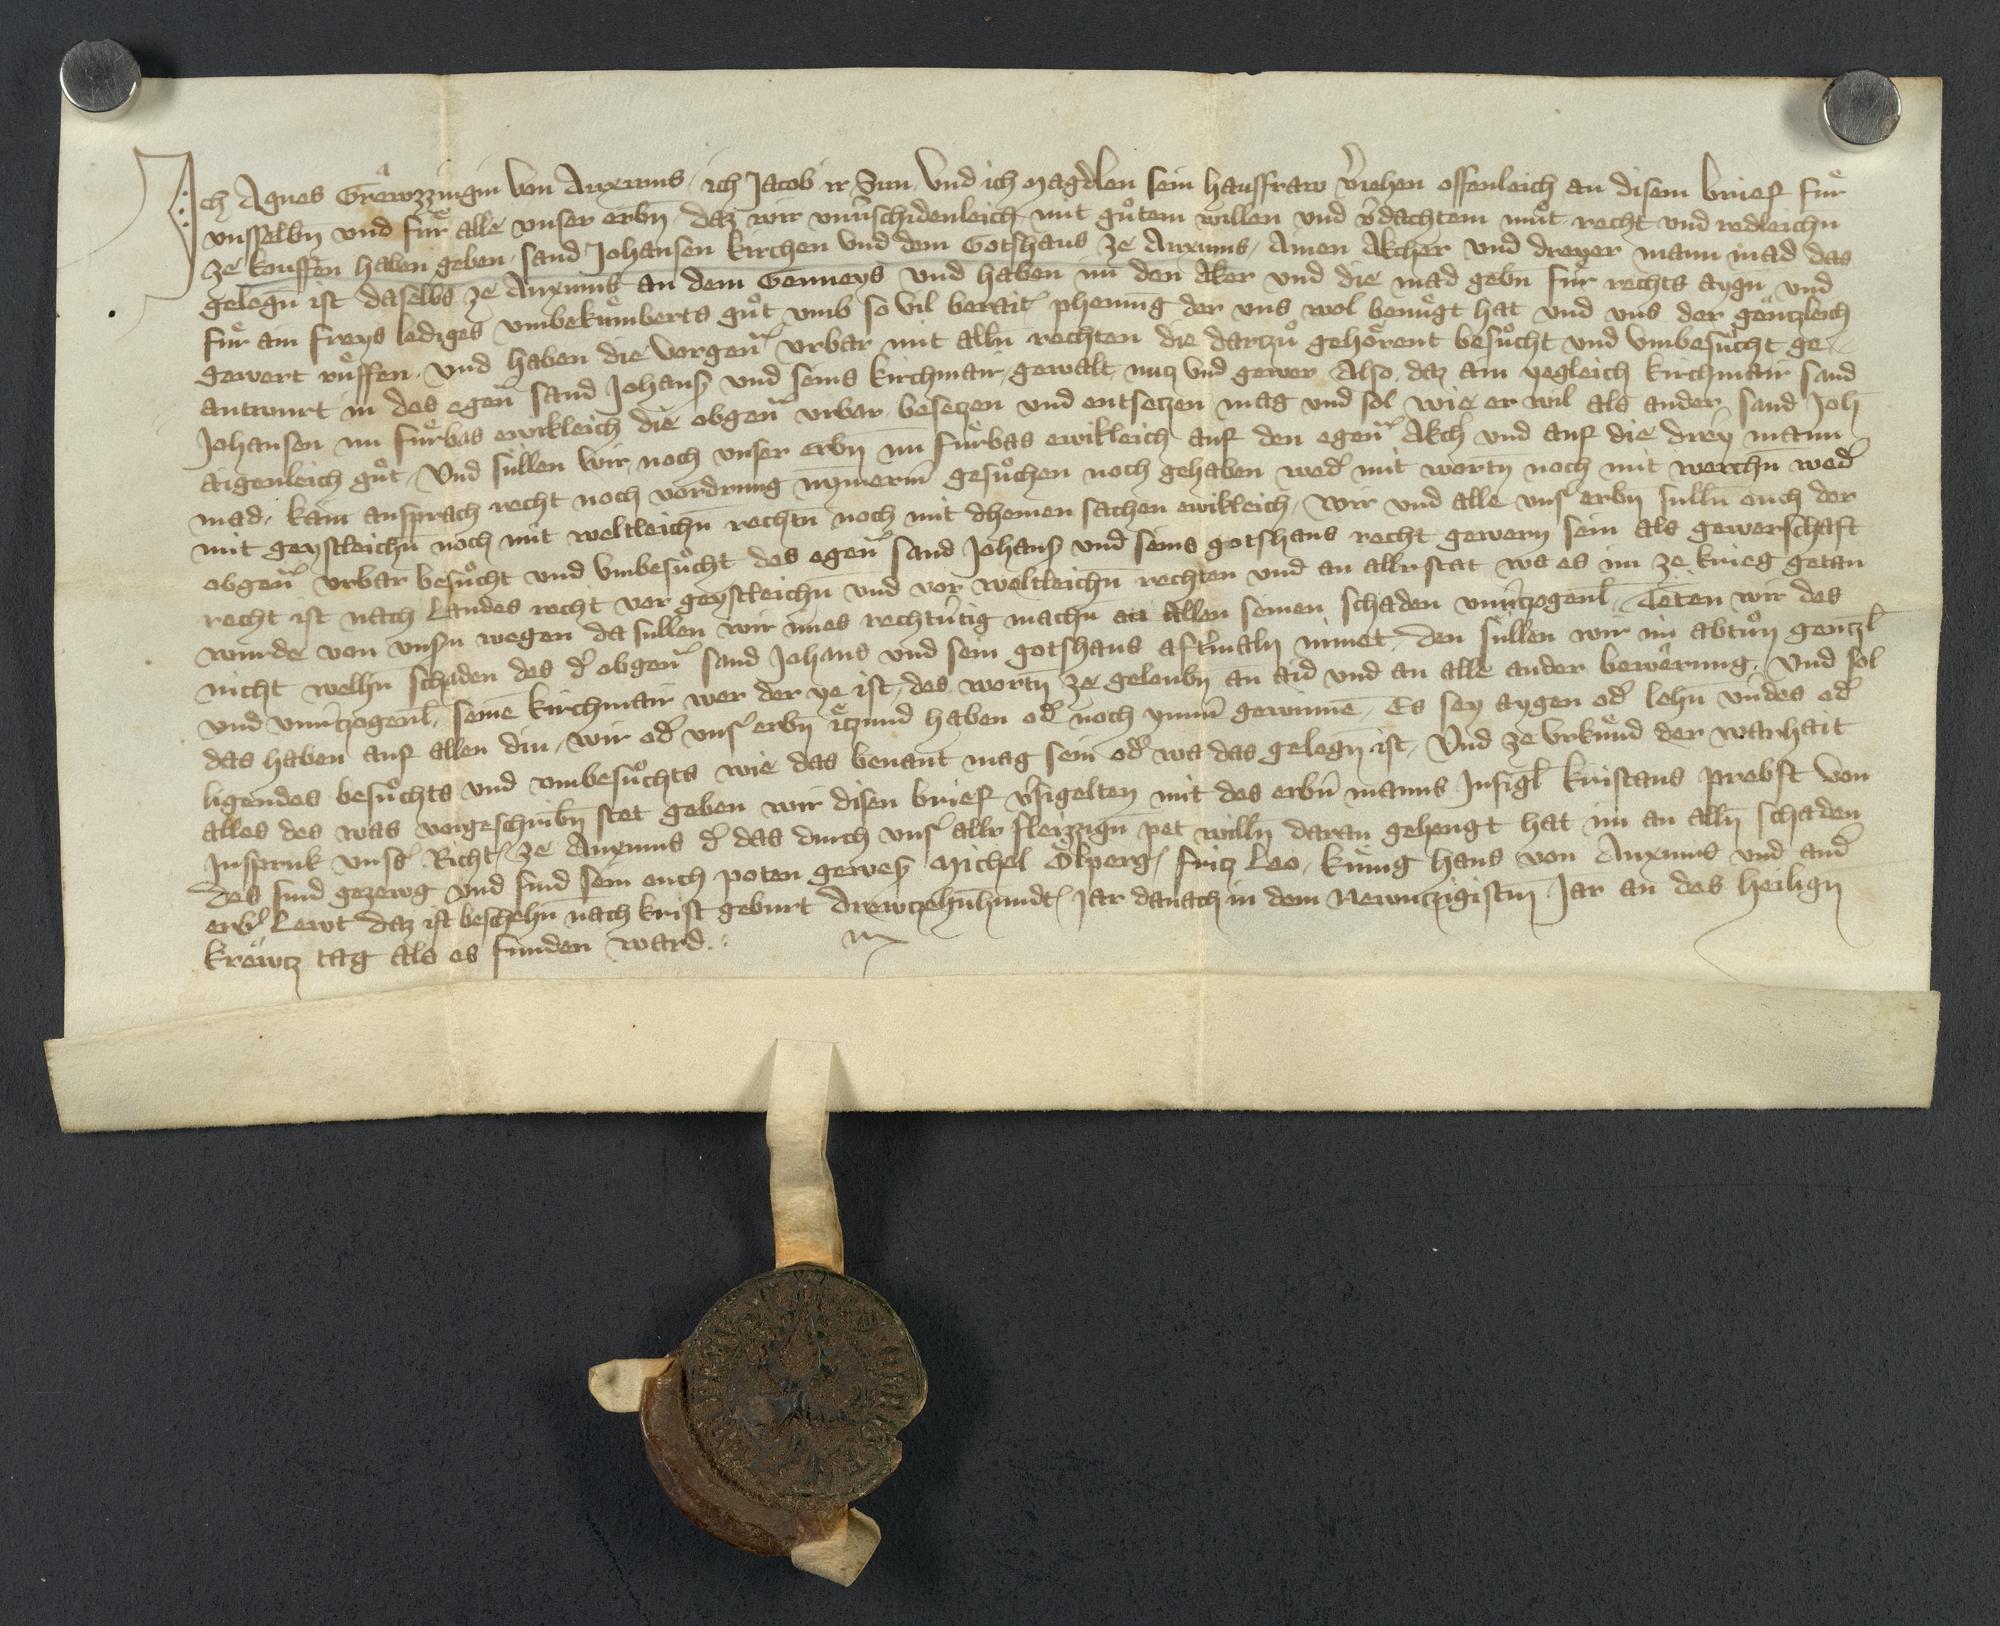 Ich Agnes Grëwzzingin von Axums, ich Jacob ir Sun, Und ich Magdlen sein hausfraw v̓iehen offenleich an disem brief fuͤr
unsselbn̄ und fuͤr alle unser erbn̄, daz wir unu̓schidenleich mit guͦtem willen und v̓dachtem muͦt recht und redleichn
ze kouffen haben geben, sand Johansen kirchen Und dem Gotshaus ze Axums, Ainen Akcher und dreyer mann mad das
gelegn̄ ist daselbs ze Axums an dem Genneys und haben im den Aker und die mad gebn̄ fuͤr rechts aygn̄ und
fuͤr ain freys lediges umbekuͤmberts guͦt umb so vil berait̓ phenning der uns wol benuͤgt hat und uns der gëntzleich
gewert ruͤffen. Und haben die vorgen̄̓ urbar mit alln̄ rechten die dartzuͦ gehoͤrent besuͦcht und umbesuͦcht ge
antwurt in des egen̄̓ sand Johans und seins kirchmair, gewalt nutz und gewer Also, daz ain yegleich kirchmair sand
Johansen nu fuͤrbas ewikleich die obgen̄̓ urbar besetzen und entsetzen mag und sol wie er wil als ander sand Joh̄
aigenleich guͦt, Und sullen wir noch unser erbn̄ nu fuͤrbas ewikleich auf den egen̄̓ Akch̓ und auf die drey mann
mad, kain ansprach recht noch vordrung nymerm̄ gesuͦchen noch gehaben wed̓ mit wortn̄ noch mit werchn̄ wed̓
mit geystleichn̄ noch mit weltleichn̄ rechtn̄ noch mit dheinen sachen ewikleich, Wir und alle uns̓ erbn̄ sulln̄ ouch der
obgen̄̓ urbar besuͦcht und umbesuͦcht des egen̄̓ sand Johans und seins gotshaus recht gewern̄ sein als gewerschaft
recht ist nach Landes recht vor geystleichn̄ und vor weltleichn̄ rechten und an aller stat wo es im ze krieg getan
wurde von unsn̄ wegen da sullen wir imes rechtu̓tig machn̄ an allen seinen schaden unu̓tzogenl̄, Tëten wir des
nicht welhn̄ schaden des d̓ obgen̄̓ sand Johans und sein gotshaus aft̓maln̄ nimet, den sullen wir im abtuͦn gentzl̄
und unu̓tzogenl̄, seinē kirchmair wer der ye ist, des wortn̄ ze geloubn̄ an aid und an alle ander bewërung. Und sol
das haben auf allen din, wir od̓ uns̓ erbn̄ ietzund haben od̓ noch ymm̓ gewinnē, Es sey aygen od̓ lehn̄ u̓ndes od̓
ligendes besuͦchts und umbesuͦchts wie das benant mag sein od̓ wa das gelegn̄ ist, Und ze urkuͤnd der warhait
alles des was vorgeschribn̄ stet geben wir disen brief v̓sigelten mit des erbn̓ manns Insigl̄ kristans probst von
Insprukk unss̓ Richt̓ ze Axums d̓ das durch uns̓ aller fleizzign̄ pet willn̄ daran gehengt hat im an alln̄ schaden
des sind gezewg und sind sein ouch poten gewes̄ Michel Oͤlperg̓, fritz Leo, kuͤnig hans von Axums und and̓
erb̓ Lewt daz ist beschehn̄ nach krist geburt drewtzehn̄hundt̓ jar danach in dem Newntzigistn̄ Jar an des heilign̄
krëwtz tag als es funden ward.